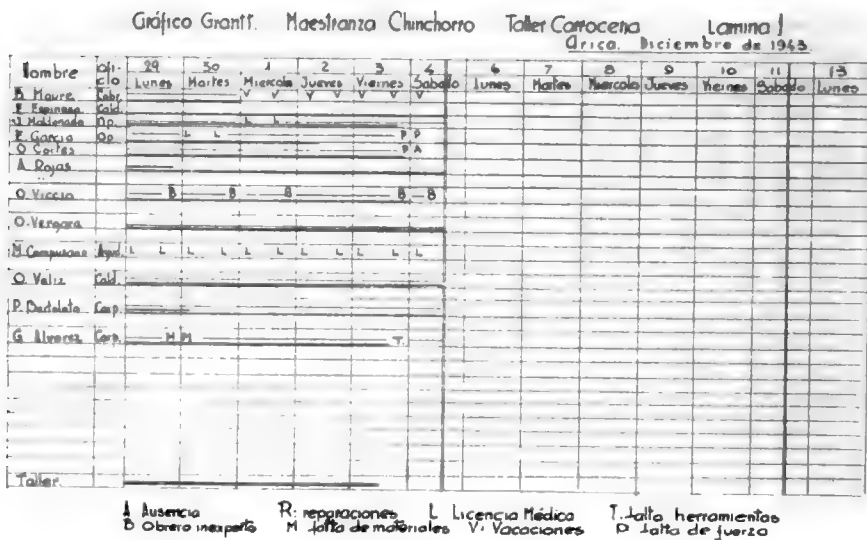 Gráfico Grantt. Maestranza Chinchorro Taller Carrocena Lamina 1
Arica. Diciembre de 1943.
Nombre ofi-cio 29 Lunes 30 Martes 1 Miercoles 2 Jueves 3 Viernes 4 Sabado 6 Lunes 7 Martes 8 Miercoles 9 Jueves 10 Viernes 11 Sabado 13 Lunes
Maure V V V V V V V
E. Espinosa Cald.
J. Maldonado Op. L L
E. Garcia Op. L L P P
O. Cortes P A
A. Rojas
O. Viccia B B B B B
O. Vergara
M. Campusano Ayud. L L L L L L L L L L L
O. Veliz Cald.
P. Bartolato Carp.
G. Alvarez Carp. M M T.
Taller.
A Ausencia R: reparaciones L Licencia Médica T. falta herramientas
B Obrero inexperto M falta de materiales V: Vacaciones P falta de fuerza